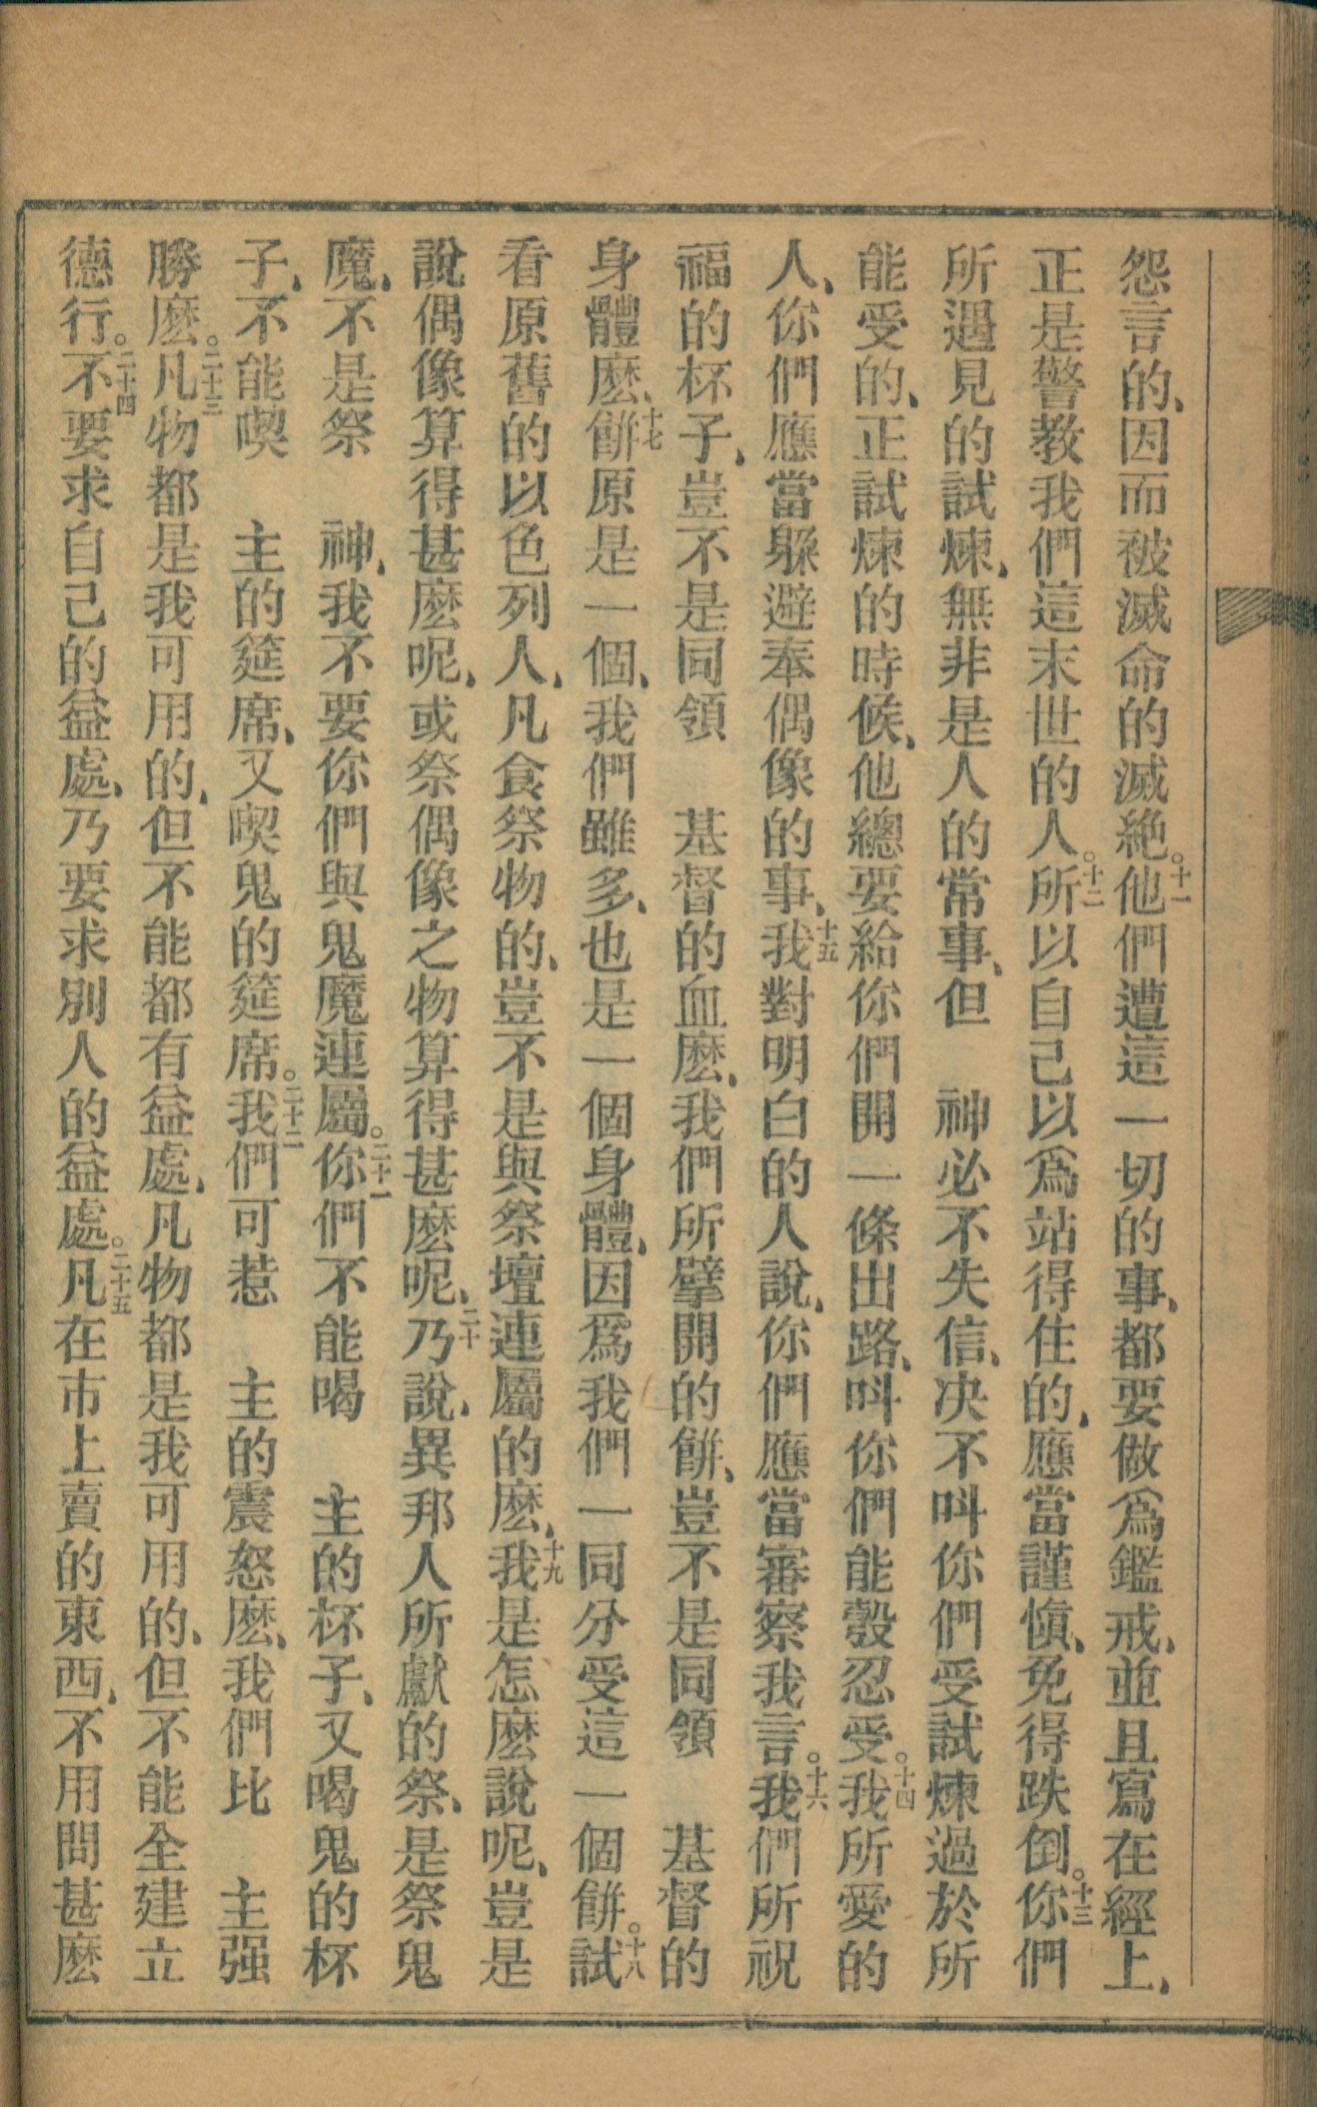 怨言的、因而被滅命的滅絕。十一他們遭這一切的事、都要做爲鑑戒、並且寫在經上、
正是警教我們這末世的人。十二所以自己以爲站得住的、應當謹愼、免得跌倒。十三你們
所遇見的試煉、無非是人的常事、但　神必不失信、决不叫你們受試煉過於所
能受的、正試煉的時候、他總要給你們開一條出路、叫你們能彀忍受。十四我所愛的
人、你們應當躲避奉偶像的事、十五我對明白的人說、你們應當審察我言。十六我們所祝
福的杯子、豈不是同領　基督的血麽、我們所擘開的餅、豈不是同領　基督的
身體麽、十七餅原是一個、我們雖多、也是一個身體、因爲我們一同分受這一個餅。十八試
看原舊的以色列人、凡食祭物的、豈不是與祭壇連屬的麽、十九我是怎麽說呢、豈是
說偶像算得甚麽呢、或祭偶像之物算得甚麽呢、二十乃說、異邦人所獻的祭、是祭鬼
魔、不是祭　神、我不要你們與鬼魔連屬。二十一你們不能喝　主的杯子、又喝鬼的杯
子、不能喫　主的筵席、又喫鬼的筵席。二十二我們可惹　主的震怒麽、我們比　主强
勝麽。二十三凡物都是我可用的、但不能都有益處、凡物都是我可用的、但不能全建立
德行。二十四不要求自己的益處、乃要求別人的益處。二十五凡在市上賣的東西、不用問甚麽